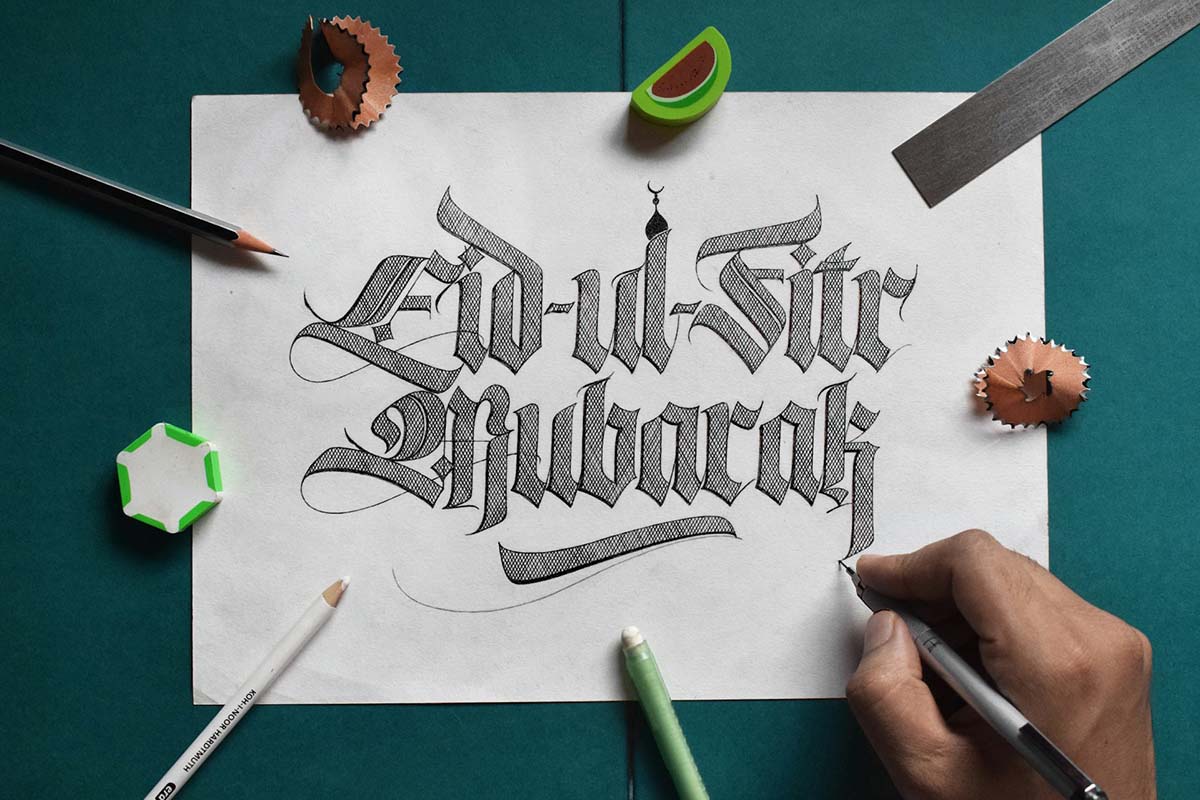 Eid-ul-Fitr
Mubarak
KOH-I-NOOR HARDTMUTH